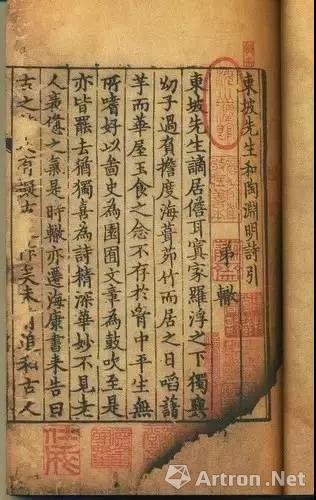 東坡先生和陶淵明詩引
弟轍
東坡先生謫居儋耳寘家羅浮之下獨與
幼子過負擔度海葺茆竹而居之日啗藷
芋而華屋玉食之念不存於胷中平生無
所嗜好以啚史為園囿文章為鼓吹至是
亦皆罷去猶獨喜為詩精深華妙不見老
人衰憊之氣是時轍亦遷海康書来告曰
古之 有擬古 作矣未 追和古人
Artron.Net